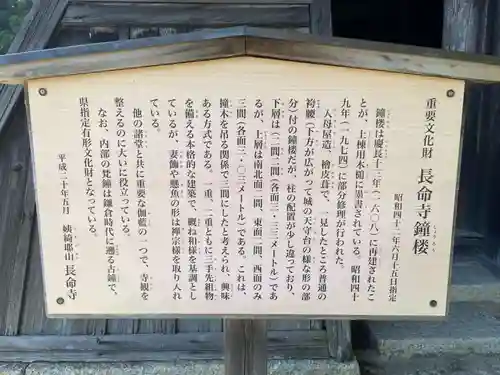 重要文化財 長命寺鐘楼
しょうろう
昭和四十二年六月十五日指定
鐘楼は慶長十三年(一六〇八)に再建されたこ
とが、上棟用木槌に墨書されている。昭和四十
九年(一九七四)に部分修理が行われた。
入母屋造、檜皮葺で、一見したところ普通の
袴腰(下方が広がって城の天守台の様な形の部
分)付の鐘楼だが、柱の配置が少し違っており、
下層は三間二間(各面三・三三メートル)であ
るが、上層は南北面二間、東面二間、西面のみ
三間(各面三・〇三メートル)である。これは、
撞木を吊る関係で三間にしたと考えられ、興味
ある方式である。一重、二重ともに三手先組物
を備える本格的な建築で、概ね和様を基調とし
ているが、妻飾や懸魚の形は禅宗様を取り入れ
ている。
他の諸堂と共に重要な伽藍の一つで、寺観を
整えるのに大いに役立っている。
なお、内部の梵鐘は鎌倉時代に遡る古鐘で、
県指定有形文化財となっている。
平成二十年五月 姨綺耶山 長命寺